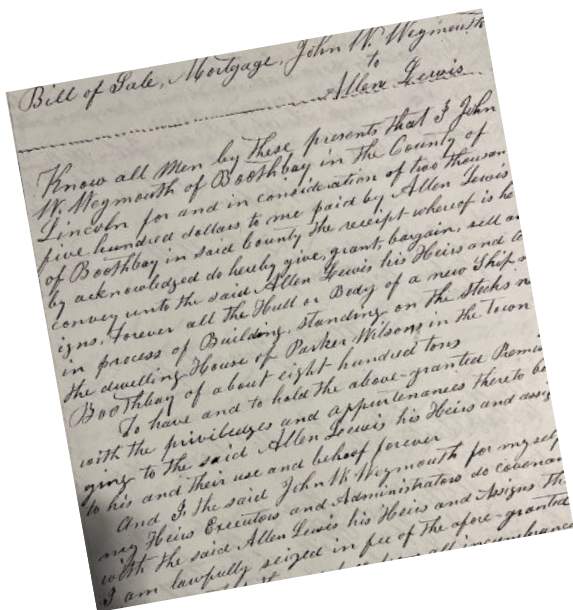 Bill of Sale, Mortgage, John W. Weymouth
to
Allen Lewis
Know all Men by these presents that I John
W. Weymouth of Boothbay in the County of
Lincoln for and in consideration of two thousan
five hundred dollars to me paid by Allen Lewis
of Boothbay in said County the receipt whereof is he
by acknowledged do hereby give, grant, bargain, sell an
convey unto the said Allen Lewis his Heirs and A
igns, forever all the Hull or Body of a new Ship n
in process of Building, standing on the Stocks n
the dwelling House of Parker Wilsons in the Town
Boothbay of about eight hundred tons
To have and to hold the above-granted Premi
with the priviledges and appurtenances thereto be
ging to the said Allen Lewis his Heirs and assig
to his and their use and behoof forever
And I, the said John W. Weymouth for myself
my Heirs Executors and Administrators do covenan
with the said Allen Lewis his Heirs and Assigns th
I am lawfully seized in fee of the afore-granted
all incumbrance